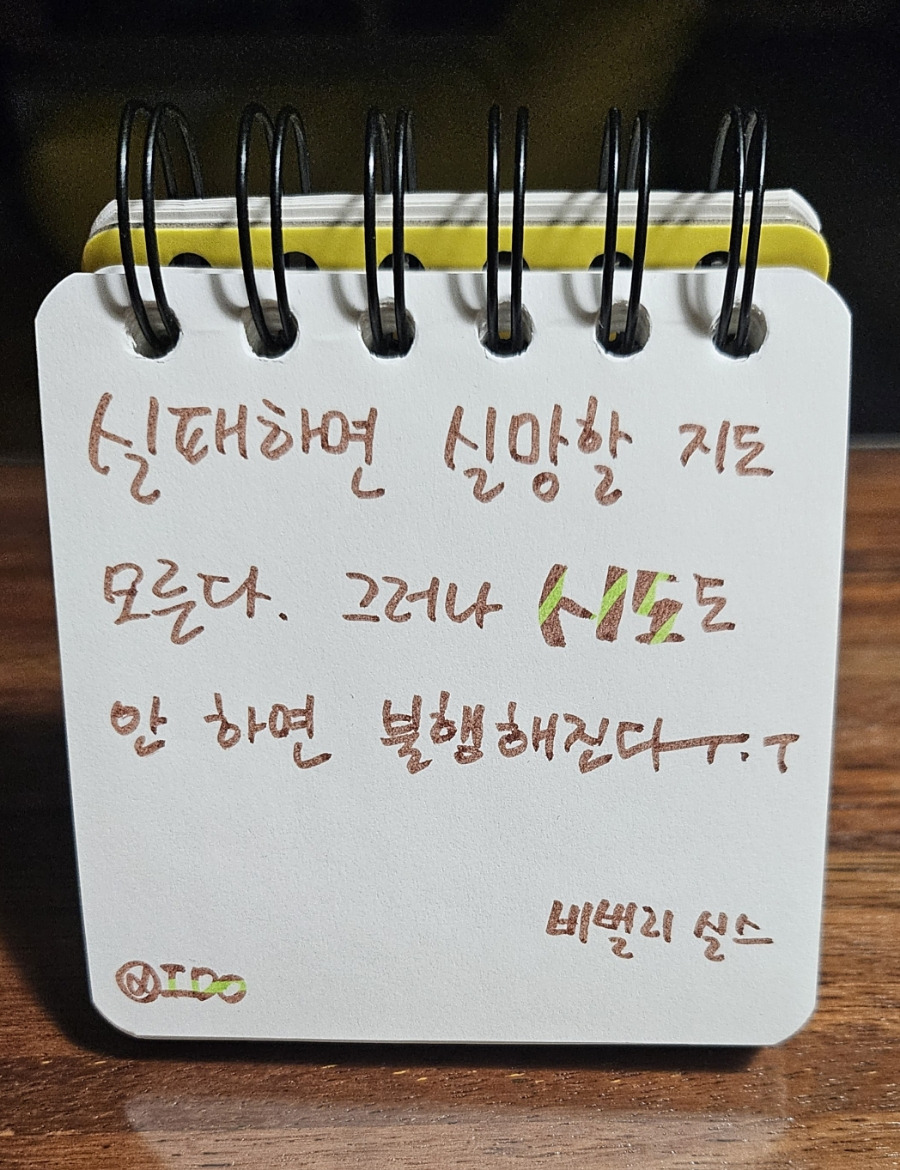 실패하면 실망할 지도
모른다. 그러나 시도도
안 하면 불행해진다ㅜ.ㅜ
비벌리 실스